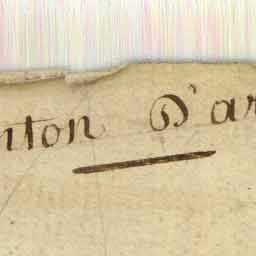 nton D'ar